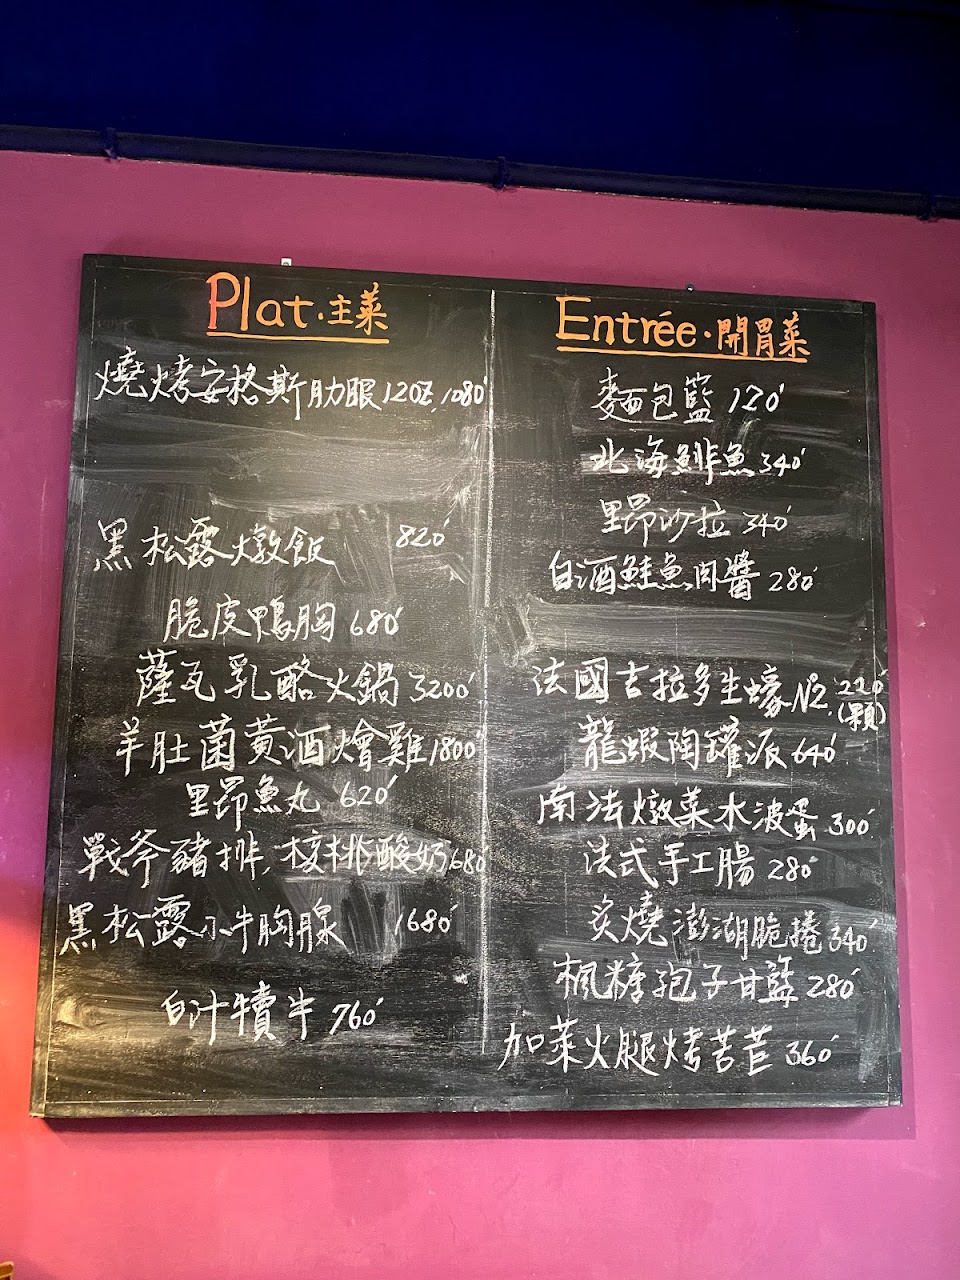 Plat·主菜
燒烤安格斯肋眼12oz. 1080
黑松露燉飯 820
脆皮鴨胸 680
薩瓦乳酪火鍋 3200
羊肚菌黃酒燴雞 1800
里昂魚丸 620
戰斧豬排, 核桃酸奶 680
黑松露小牛胸腺 1680
白汁犢牛 760
Entrée·開胃菜
麵包籃 120
北海鯡魚 340
里昂沙拉 340
白酒鮭魚肉醬 280
法國吉拉多生蠔 №2. 220
(顆)
龍蝦陶罐派 640
南法燉菜水波蛋 300
法式手工腸 280
炙燒澎湖脆捲 340
楓糖孢子甘藍 280
加萊火腿烤苦苣 360